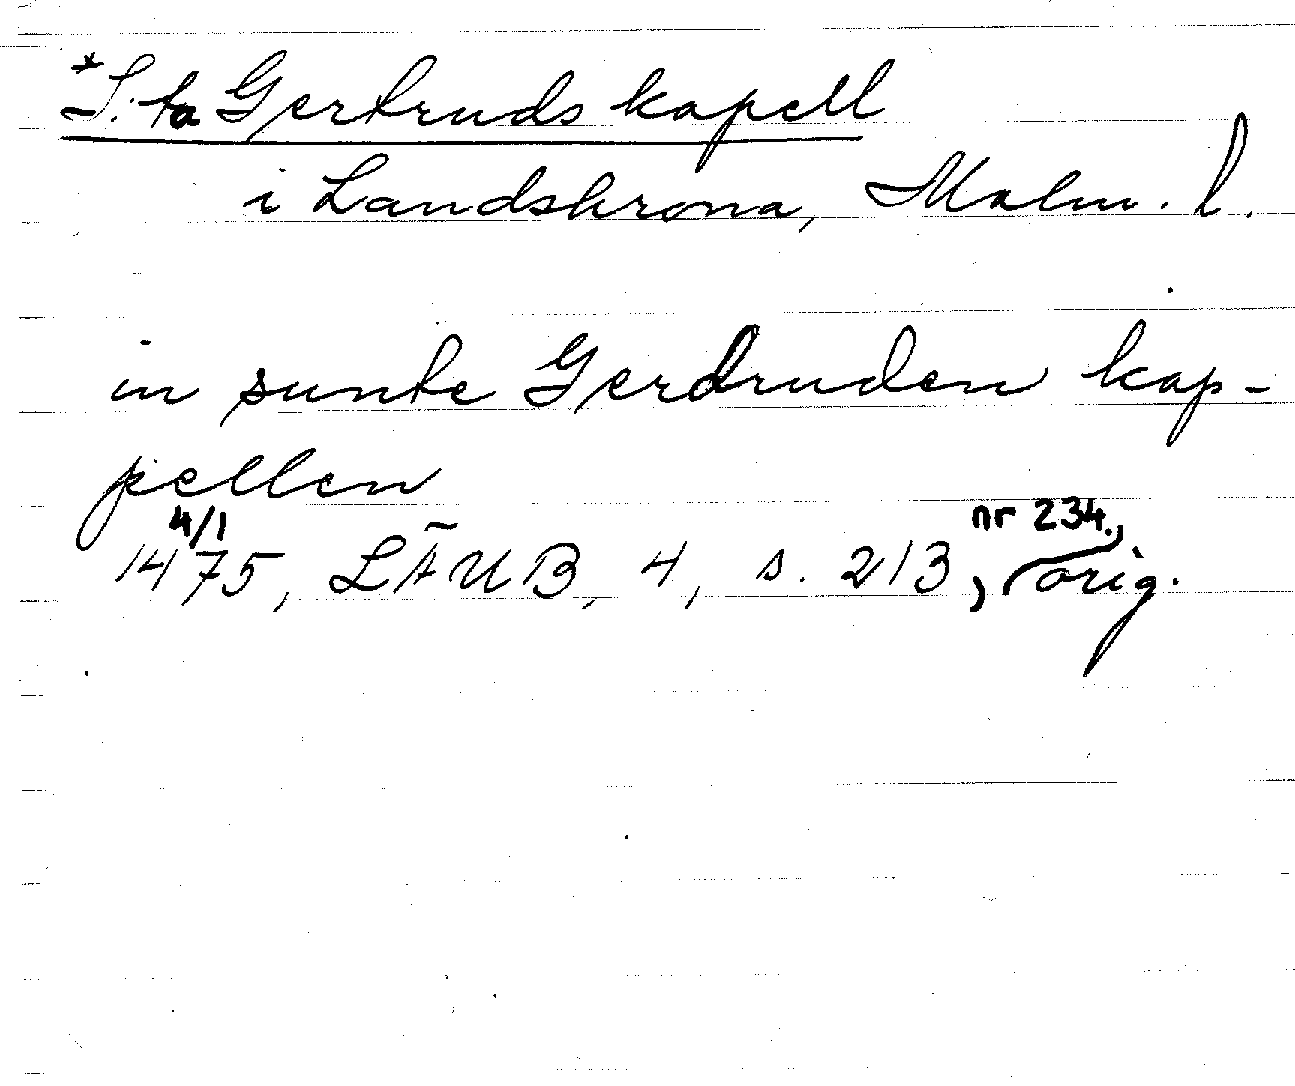 *S:ta Gertruds kapell
i Landskrona, Malm. l.
in sunte Gerdruden kap-
pellen
4/1 nr 234.,
1475, LÄUB, 4, s. 213, orig.